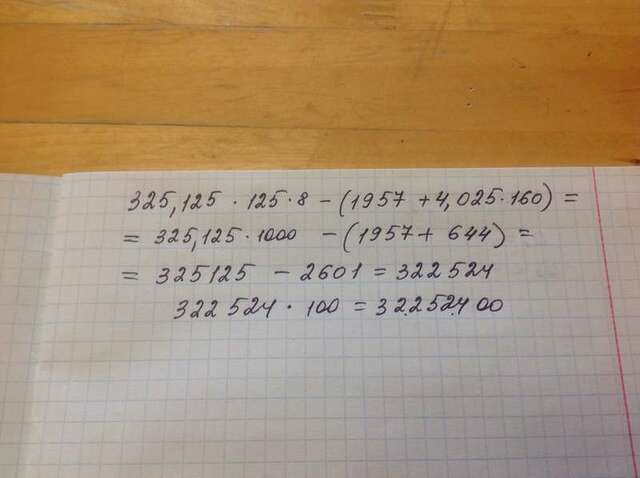 325,125 · 125 · 8 - (1957 + 4,025 · 160) =
= 325,125 · 1000 - (1957 + 644) =
= 325125 - 2601 = 322524
322524 · 100 = 32.252.400